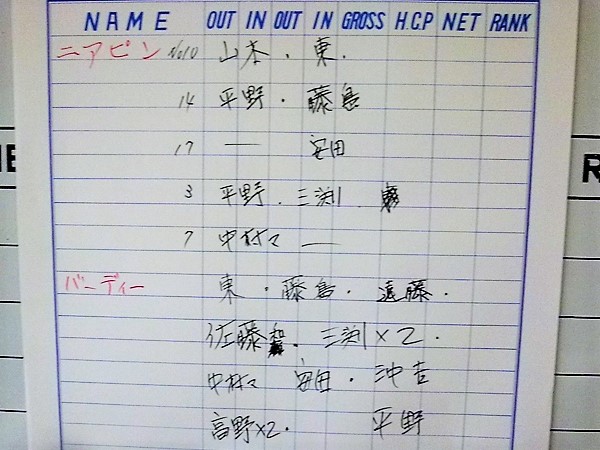 NAME OUT IN OUT IN GROSS H.C.P NET RANK
ニアピン No10 山本・東.
14 平野・藤島
17 — 安田
3 平野.三渕.
7 中村々 —
バーディー 東・藤島・遠藤.
佐藤 . 三渕×2.
中村々 安田・沖吉
高野×2. 平野
R